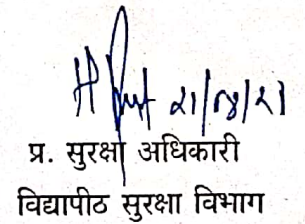 २१/०४/२१
प्र. सुरक्षा अधिकारी
विद्यापीठ सुरक्षा विभाग